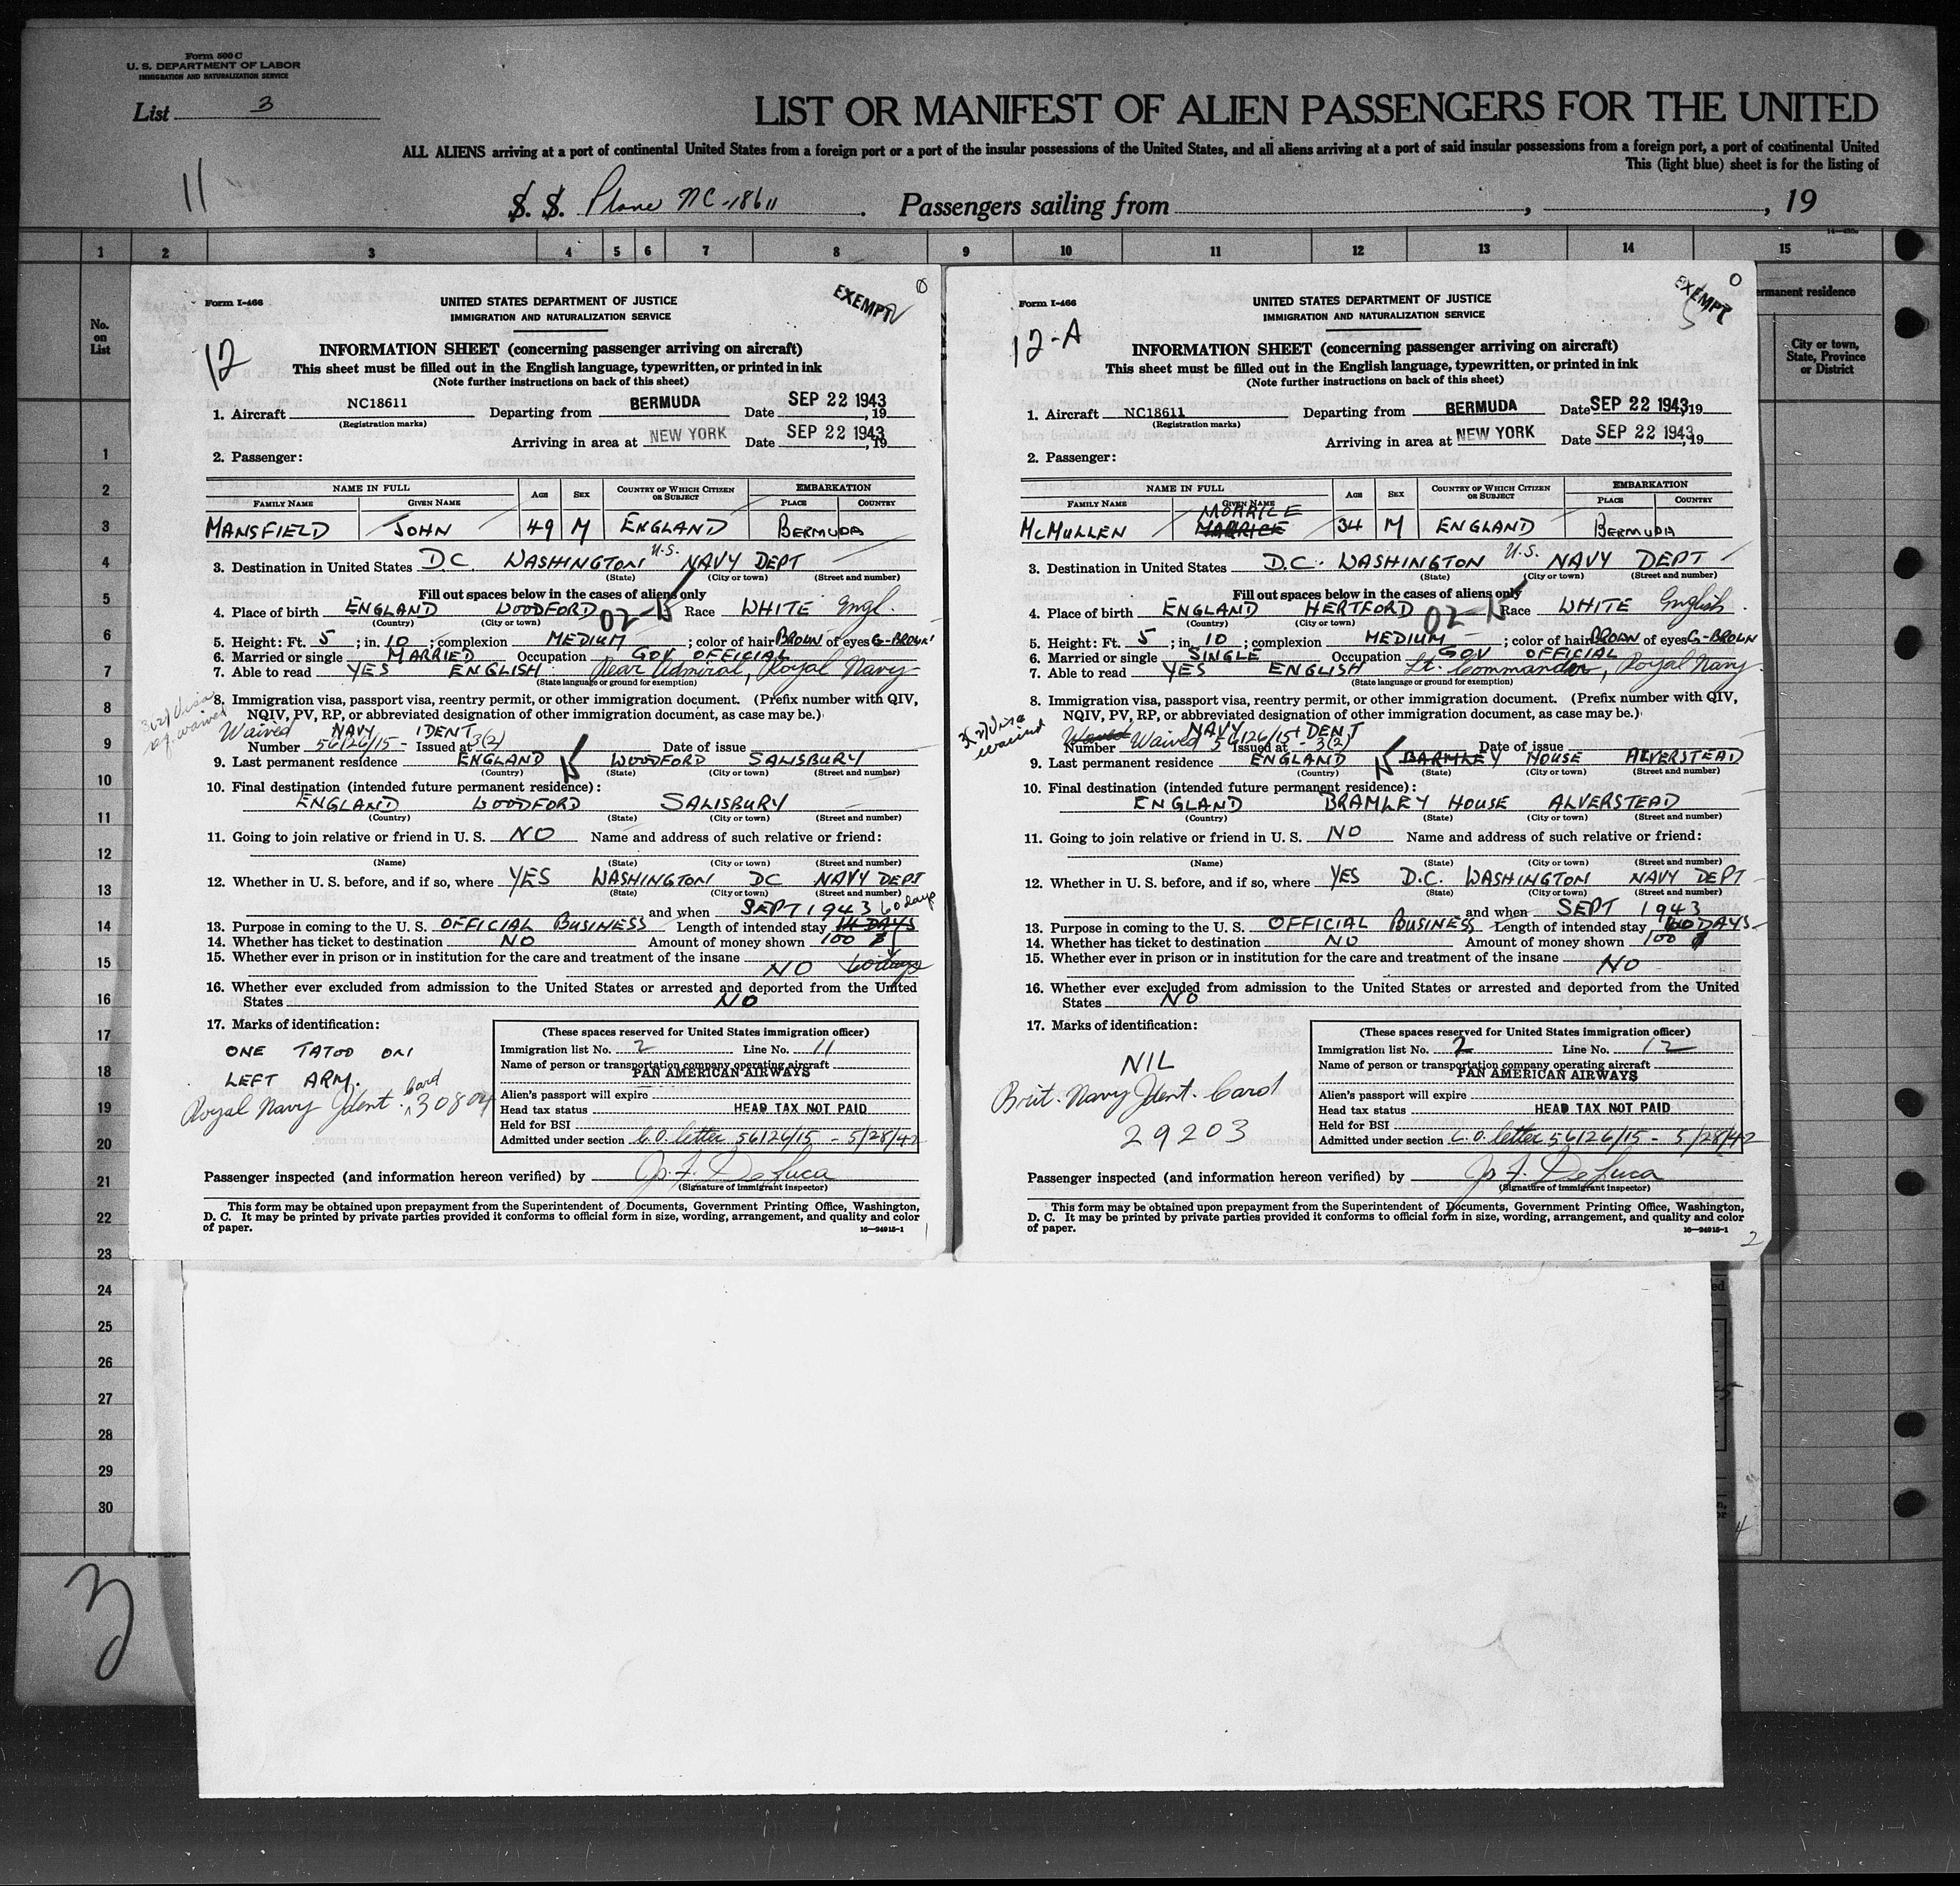 Form 500 C
U. S. DEPARTMENT OF LABOR
IMMIGRATION AND NATURALIZATION SERVICE
List 3
LIST OR MANIFEST OF ALIEN PASSENGERS FOR THE UNITED
ALL ALIENS arriving at a port of continental United States from a foreign port or a port of the insular possessions of the United States, and all aliens arriving at a port of said insular possessions from a foreign port, a port of continental United
This (light blue) sheet is for the listing of
11
S. S. Plane NC-18611. Passengers sailing from , , 19
1 2 3 4 5 6 7 8 9 10 11 12 13 14 15
No. on List
rmanent residence
City or town, State, Province or District
1
2
3
4
5
6
7
8
9
10
11
12
13
14
15
16
17
18
19
20
21
22
23
24
25
26
27
28
29
30
3
Form I-466
UNITED STATES DEPARTMENT OF JUSTICE
IMMIGRATION AND NATURALIZATION SERVICE
EXEMPT
0
12
INFORMATION SHEET (concerning passenger arriving on aircraft)
This sheet must be filled out in the English language, typewritten, or printed in ink
(Note further instructions on back of this sheet)
1. Aircraft NC18611 Departing from BERMUDA Date SEP 22 1943, 19
(Registration marks)
Arriving in area at NEW YORK Date SEP 22 1943, 19
2. Passenger:
NAME IN FULL AGE SEX COUNTRY OF WHICH CITIZEN OR SUBJECT EMBARKATION
FAMILY NAME GIVEN NAME PLACE COUNTRY
MANSFIELD JOHN 49 M ENGLAND BERMUDA
3. Destination in United States D.C. WASHINGTON U.S. NAVY DEPT
(State) (City or town) (Street and number)
Fill out spaces below in the cases of aliens only
4. Place of birth ENGLAND WOODFORD 02-15 Race WHITE Engl.
(Country) (City or town)
5. Height: Ft. 5; in. 10; complexion MEDIUM; color of hair BROWN of eyes G-BROWN
6. Married or single MARRIED Occupation GOV OFFICIAL
7. Able to read YES ENGLISH Rear Admiral, Royal Navy
(State language or ground for exemption)
8. Immigration visa, passport visa, reentry permit, or other immigration document. (Prefix number with QIV,
NQIV, PV, RP, or abbreviated designation of other immigration document, as case may be.)
Waived NAVY IDENT
Number 56126/15 - Issued at 3(2) Date of issue
9. Last permanent residence ENGLAND WOODFORD SALISBURY
(Country) (State) (City or town) (Street and number)
10. Final destination (intended future permanent residence):
ENGLAND WOODFORD SALISBURY
(Country) (State) (City or town) (Street and number)
11. Going to join relative or friend in U. S. NO Name and address of such relative or friend:
(Name) (State) (City or town) (Street and number)
12. Whether in U. S. before, and if so, where YES WASHINGTON DC NAVY DEPT
(State) (City or town) (Street and number)
and when SEPT 1943 60 days
13. Purpose in coming to the U. S. OFFICIAL BUSINESS Length of intended stay 14 DAYS
14. Whether has ticket to destination NO Amount of money shown 100 $
15. Whether ever in prison or in institution for the care and treatment of the insane
NO 60 days
16. Whether ever excluded from admission to the United States or arrested and deported from the United
States NO
17. Marks of identification:
ONE TATOO ON
LEFT ARM.
Royal Navy Ident. Card 30804
(These spaces reserved for United States immigration officer)
Immigration list No. 2 Line No. 11
Name of person or transportation company operating aircraft
PAN AMERICAN AIRWAYS
Alien's passport will expire
Head tax status HEAD TAX NOT PAID
Held for BSI
Admitted under section C.O. letter 56126/15 - 5/28/42
Passenger inspected (and information hereon verified) by Jo. F. De Luca
(Signature of immigrant inspector)
This form may be obtained upon prepayment from the Superintendent of Documents, Government Printing Office, Washington,
D. C. It may be printed by private parties provided it conforms to official form in size, wording, arrangement, and quality and color
of paper.
16-24915-1
1
Form I-466
UNITED STATES DEPARTMENT OF JUSTICE
IMMIGRATION AND NATURALIZATION SERVICE
0
EXEMPT
12-A
INFORMATION SHEET (concerning passenger arriving on aircraft)
This sheet must be filled out in the English language, typewritten, or printed in ink
(Note further instructions on back of this sheet)
1. Aircraft NC18611 Departing from BERMUDA Date SEP 22 1943, 19
(Registration marks)
Arriving in area at NEW YORK Date SEP 22 1943, 19
2. Passenger:
NAME IN FULL AGE SEX COUNTRY OF WHICH CITIZEN OR SUBJECT EMBARKATION
FAMILY NAME GIVEN NAME PLACE COUNTRY
MORRICE
MCMULLEN 34 M ENGLAND BERMUDA
3. Destination in United States D.C. WASHINGTON U.S. NAVY DEPT
(State) (City or town) (Street and number)
Fill out spaces below in the cases of aliens only
4. Place of birth ENGLAND HERTFORD 02-15 Race WHITE English
(Country) (City or town)
5. Height: Ft. 5; in. 10; complexion MEDIUM; color of hair BROWN of eyes G-BROWN
6. Married or single SINGLE Occupation GOV OFFICIAL
7. Able to read YES ENGLISH Lt. Commander, Royal Navy
(State language or ground for exemption)
8. Immigration visa, passport visa, reentry permit, or other immigration document. (Prefix number with QIV,
NQIV, PV, RP, or abbreviated designation of other immigration document, as case may be.)
Waived NAVY IDENT
Number Waived 56126/15 Issued at - 3(2) Date of issue
9. Last permanent residence ENGLAND BARMLEY HOUSE ALVERSTEAD
(Country) (State) (City or town) (Street and number)
10. Final destination (intended future permanent residence):
ENGLAND BRAMLEY HOUSE ALVERSTEAD
(Country) (State) (City or town) (Street and number)
11. Going to join relative or friend in U. S. NO Name and address of such relative or friend:
(Name) (State) (City or town) (Street and number)
12. Whether in U. S. before, and if so, where YES D.C. WASHINGTON NAVY DEPT
(State) (City or town) (Street and number)
and when SEPT 1943
13. Purpose in coming to the U. S. OFFICIAL BUSINESS Length of intended stay 60 DAYS
14. Whether has ticket to destination NO Amount of money shown 100 $
15. Whether ever in prison or in institution for the care and treatment of the insane
NO
16. Whether ever excluded from admission to the United States or arrested and deported from the United
States NO
17. Marks of identification:
NIL
Brit. Navy Ident. Card
29203
(These spaces reserved for United States immigration officer)
Immigration list No. 2 Line No. 12
Name of person or transportation company operating aircraft
PAN AMERICAN AIRWAYS
Alien's passport will expire
Head tax status HEAD TAX NOT PAID
Held for BSI
Admitted under section C.O. letter 56126/15 - 5/28/42
Passenger inspected (and information hereon verified) by Jo. F. De Luca
(Signature of immigrant inspector)
This form may be obtained upon prepayment from the Superintendent of Documents, Government Printing Office, Washington,
D. C. It may be printed by private parties provided it conforms to official form in size, wording, arrangement, and quality and color
of paper.
16-24915-1
2